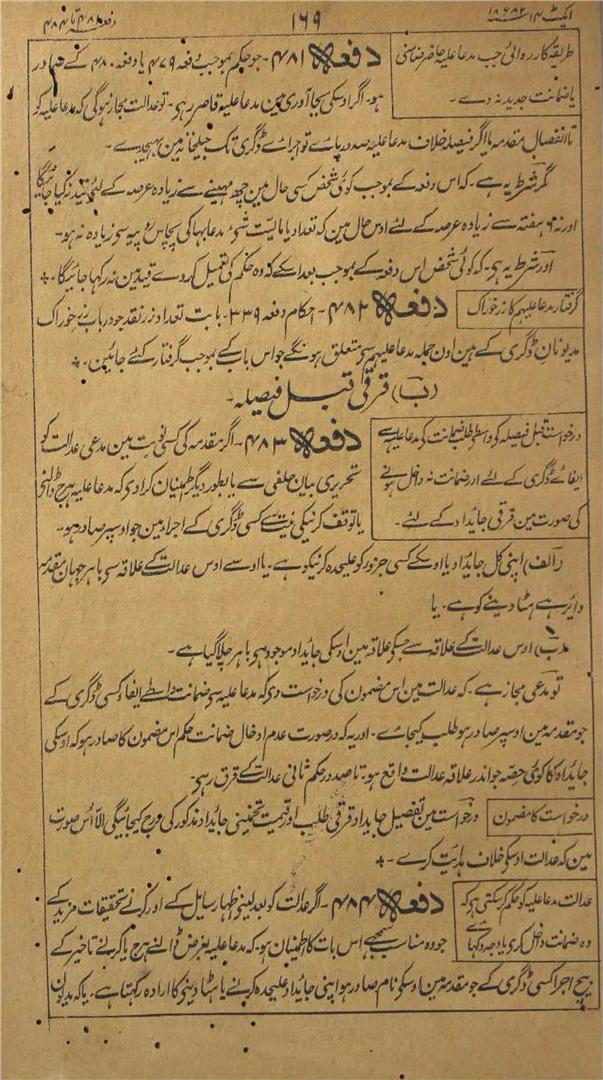 ایکٹ ۱۴ ۱۸۸۲ء
۱۶۹
دفعہ ۴۸۱ تا ۴۸۴
طریقہ کارروائی جب مدعا علیہ حاضر ضامنی
یا ضمانت جدید نہ دے۔
دفعہ ۴۸۱۔ جو حکم بموجب دفعہ ۴۷۹ یا دفعہ ۴۸۰ کے صادر
ہو۔ اگر اوسکی بجا آوری مین مدعا علیہ قاصر رہو۔ تو عدالت مجاز ہوگی کہ مدعا علیہ کو
تا انفصال مقدمہ یا اگر فیصلہ خلاف مدعا علیہ صدور پائے تو اجرائے ڈگری تک جیلخانہ مین بھیجدے۔
مگر شرط یہ ہے۔ کہ اس دفعہ کے بموجب کوئی شخص کسی حال مین چھ مہینے سے زیادہ عرصہ کے لئے قید نہ کیا جائیگا
اور نہ ۶ ہفتہ سے زیادہ عرصہ کے لئے اوس حال مین کہ تعداد یا مالیت شئ مدعا بہا کی پچاس روپیہ سی زیادہ نہ ہو۔
اور شرط یہ ہو۔ کہ کوئی شخص اس دفعہ کے بموجب بعد اسکے کہ وہ حکم کی تعمیل کردے قید مین نہ رکہا جائیگا۔
گرفتار مدعا علیہم کا زر خوراک
دفعہ ۴۸۲۔ احکام دفعہ ۳۳۹۔ بابت تعداد زر نقد جو در باب خوراک
مدیونان ڈگری کے ہین اون جملہ مدعا علیہم سی متعلق ہونگے جو اس باب کے بموجب گرفتار کئے جائین۔
(ب) قرقی قبل فیصلہ۔
درخواست قبل فیصلہ کو واسطے طلب ضمانت کو مدعا علیہ سے
ایفائے ڈگری کے لئے اور ضمانت نہ داخل ہونے
کی صورت مین قرقی جائداد کے لئے۔
دفعہ ۴۸۳۔ اگر مقدمہ کی کسی نوبت مین مدعی عدالت کو
تحریری بیان حلفی سے یا بطور دیگر اطمینان کرادی کہ مدعا علیہ ہرج ڈالنی
یا توقف کرنیکی نیت سے کسی ڈگری کے اجرا مین جو اوسپر صادر ہو۔
(الف) اپنی کل جائداد یا اوسکے کسی جزو کو علیحدہ کرنیکو ہے۔ یا اوسے اوس عدالت کے علاقہ سی باہر جہان مقدمہ
دائر ہے ہٹا دینے کو ہے۔ یا
(ب) اوس عدالت کے علاقہ سے جسکو علاقہ مین اوسکی جائداد موجود ہو باہر چلا گیا ہے۔
تو مدعی مجاز ہے۔ کہ عدالت مین اس مضمون کی درخواست دی کہ مدعا علیہ سی ضمانت واسطے ایفاء کسی ڈگری کے
جو مقدمہ مین اوسپر صادر ہو طلب کیجائے۔ اور یہ کہ درصورت عدم ادخال ضمانت حکم اس مضمون کا صادر ہو کہ اوسکی
جائداد کا کوئی حصہ جو اندر علاقہ عدالت واقع ہو تا صدور حکم ثانی عدالت کے قرق رہو۔
درخواست کا مضمون
درخواست مین تفصیل جائداد قرقی طلب اور قیمت تخمینی جائداد مذکور کی درج کیجائیگی الّا اُس صورت
مین کہ عدالت اوسکو خلاف ہدایت کرے۔
عدالت مدعا علیہ کو حکم کر سکتی ہو کہ
وہ ضمانت داخل کری یا وجہ دکہائے
دفعہ ۴۸۴۔ اگر عدالت کو بعد لینی اظہار سایل کے اور کرنے تحقیقات مزید کے
جو وہ مناسب سمجھے اس بات کا اطمینان ہو۔ کہ مدعا علیہ بغرض ڈالنے ہرج یا کرنے تاخیر کے
بیچ اجرا کسی ڈگری کے جو مقدمہ مین اوسکی نام صادر ہو اپنی جائداد علیحدہ کرنے یا ہٹا دینی کا ارادہ رکہتا ہے۔ یا کہ مدیون